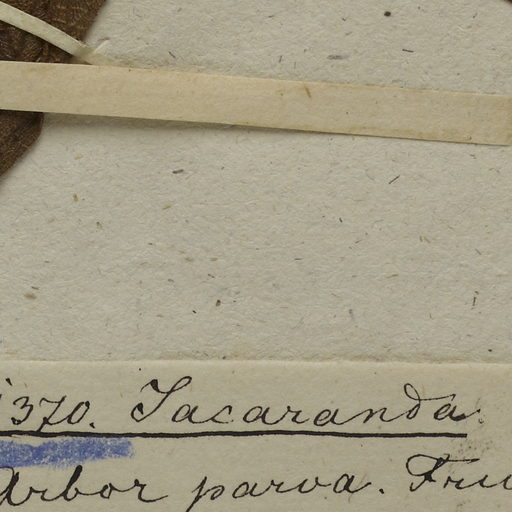 1370. Jacaranda.
Arbor parva. Fru